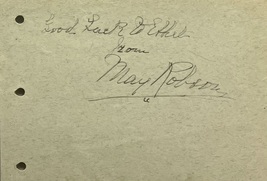 Good Luck To Ethel
from
May Robson